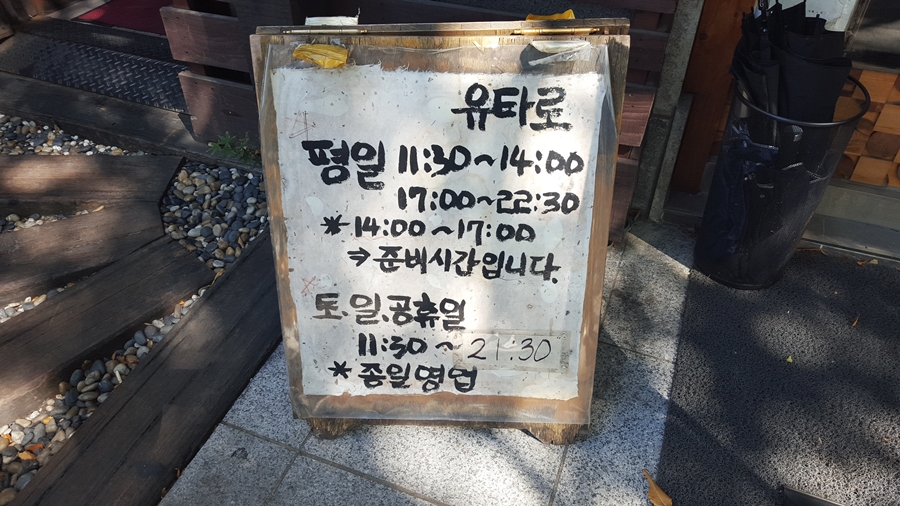 유타로
평일 11:30~14:00
17:00~22:30
*14:00~17:00
⇒준비시간입니다.
토.일.공휴일
11:30~21:30
*종일영업